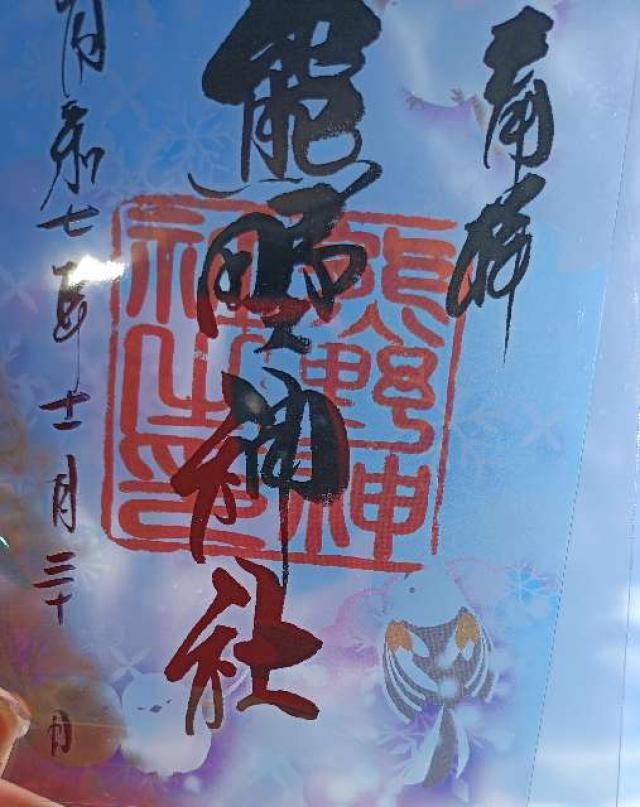 奉拝
熊野神社
熊野神
社之印
令和七年十二月三十日